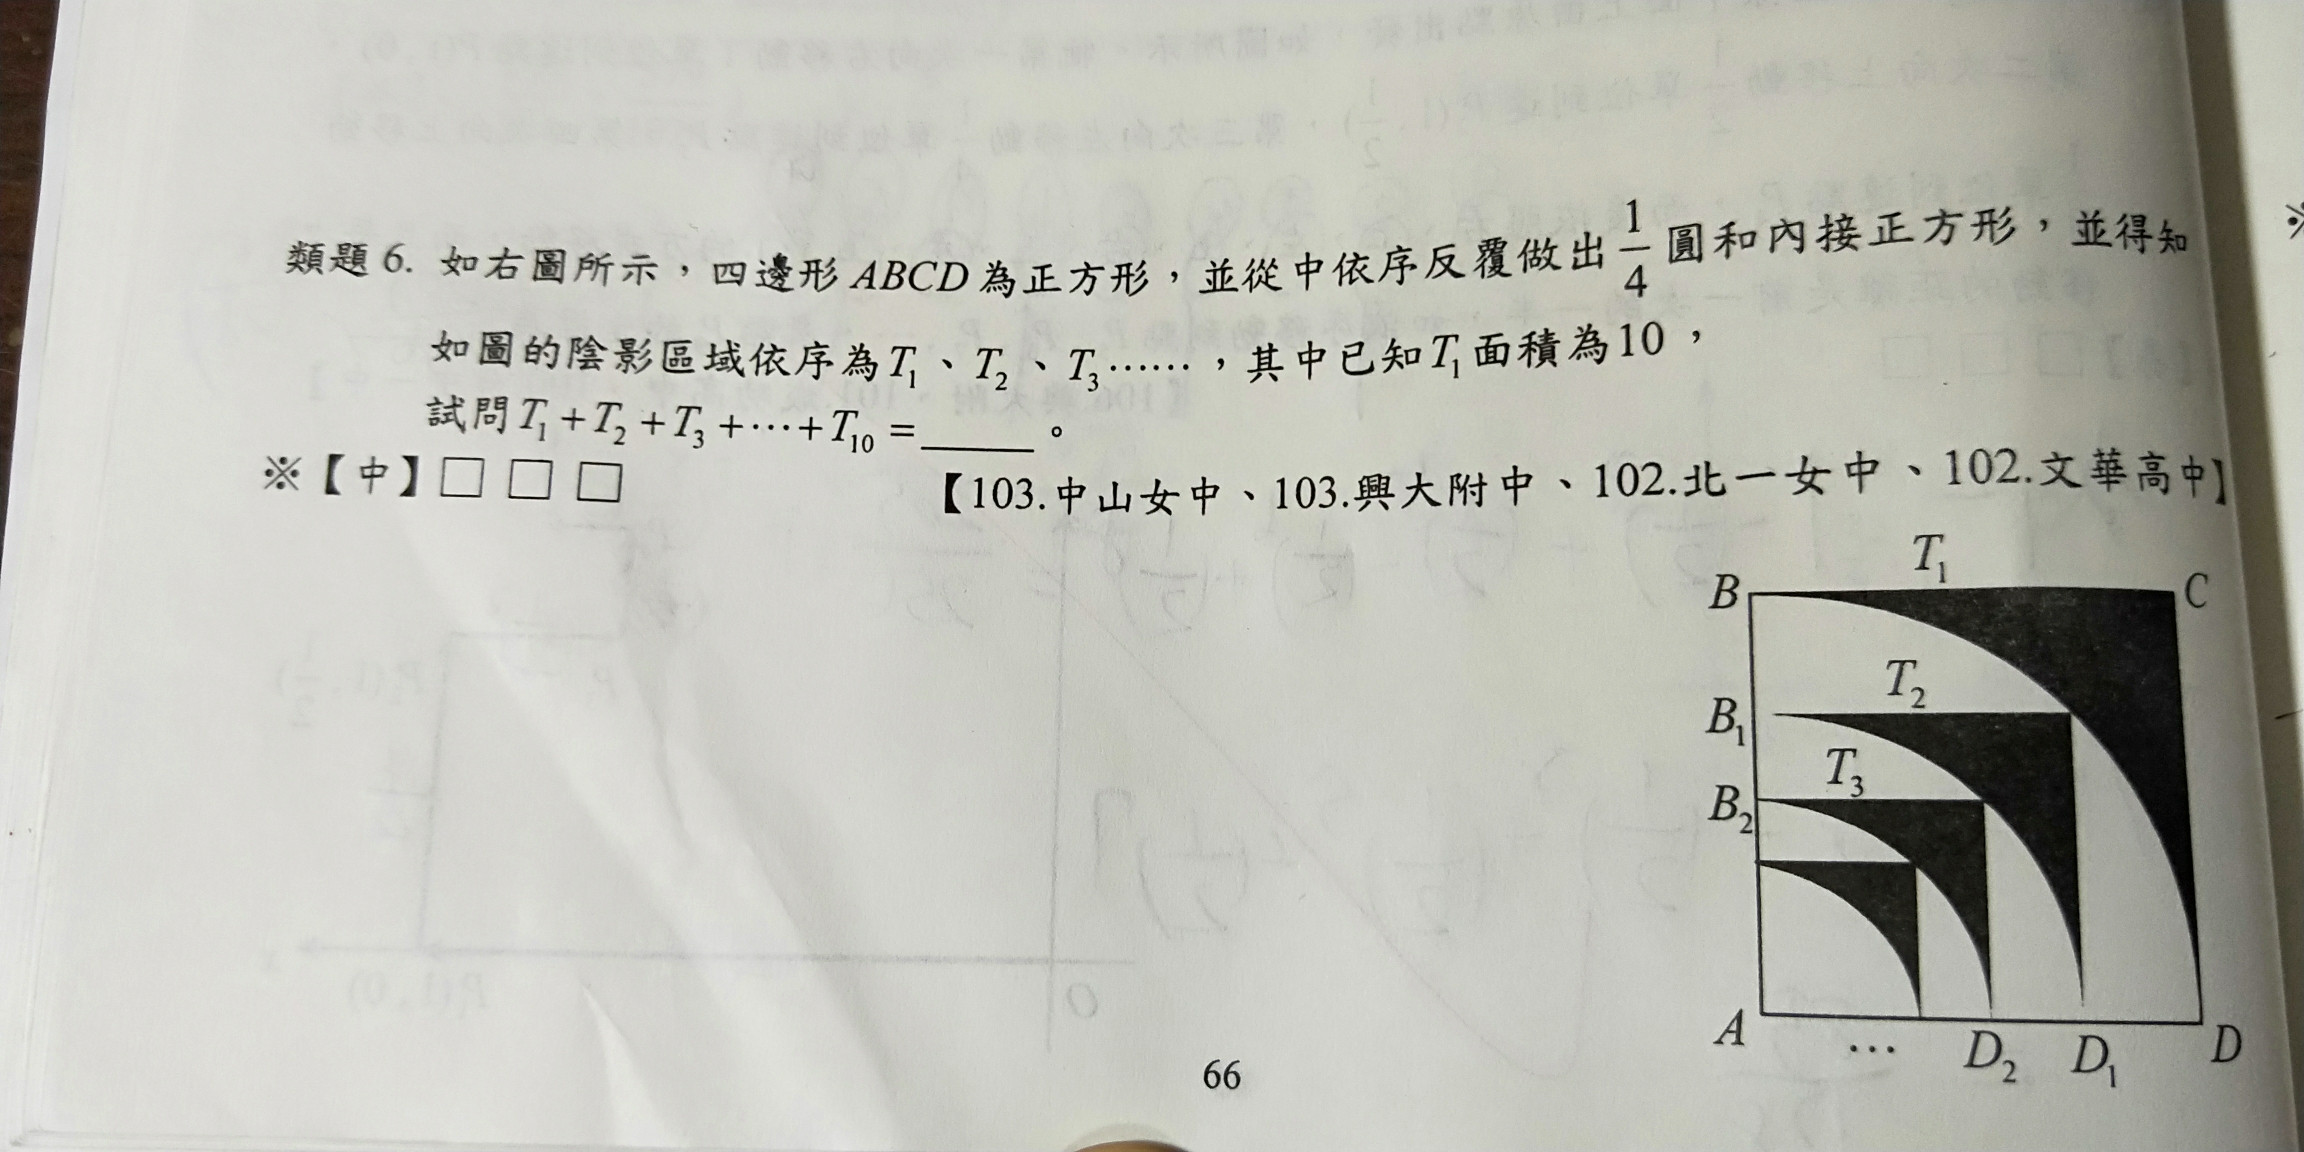 類題 6. 如右圖所示，四邊形 ABCD 為正方形，並從中依序反覆做出 1/4 圓和內接正方形，並得知
如圖的陰影區域依序為 T₁、T₂、T₃……，其中已知 T₁ 面積為 10，
試問 T₁+T₂+T₃+⋯+T₁₀=_____。
※【中】□ □ □
【103.中山女中、103.興大附中、102.北一女中、102.文華高中】
T₁
B
C
T₂
B₁
T₃
B₂
A
…
D₂
D₁
D
66
※